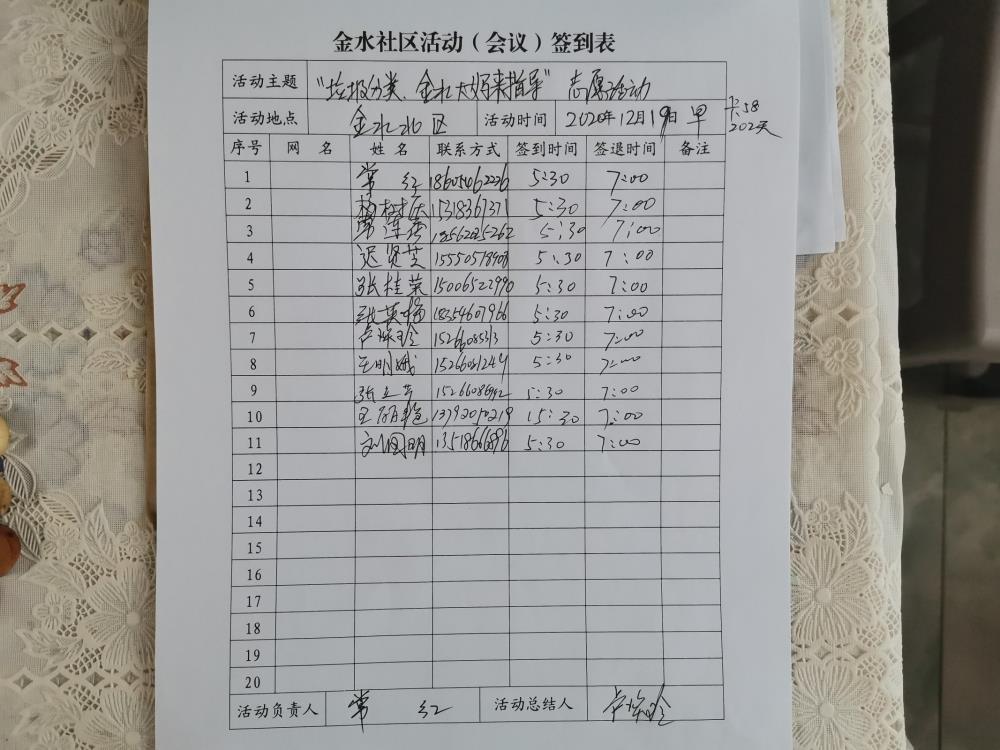 金水社区活动(会议)签到表
活动主题 "垃圾分类、金水大妈来指导" 志愿活动
活动地点 金水北区 活动时间 2020年12月19日 早
58
202天
序号 网 名 姓 名 联系方式 签到时间 签退时间 备注
1 常 红 18605462226 5:30 7:00
2 5:30 7:00
3 5:30 7:00
4 迟贤芝 5:30 7:00
5 张桂荣 15006522990 5:30 7:00
6 18354607966 5:30 7:00
7 5:30 7:00
8 王明娥 15266081244 5:30 7:00
9 5:30 7:00
10 王丽艳 13792050219 15:30 7:00
11 刘国明 5:30 7:00
12
13
14
15
16
17
18
19
20
活动负责人 常 红 活动总结人